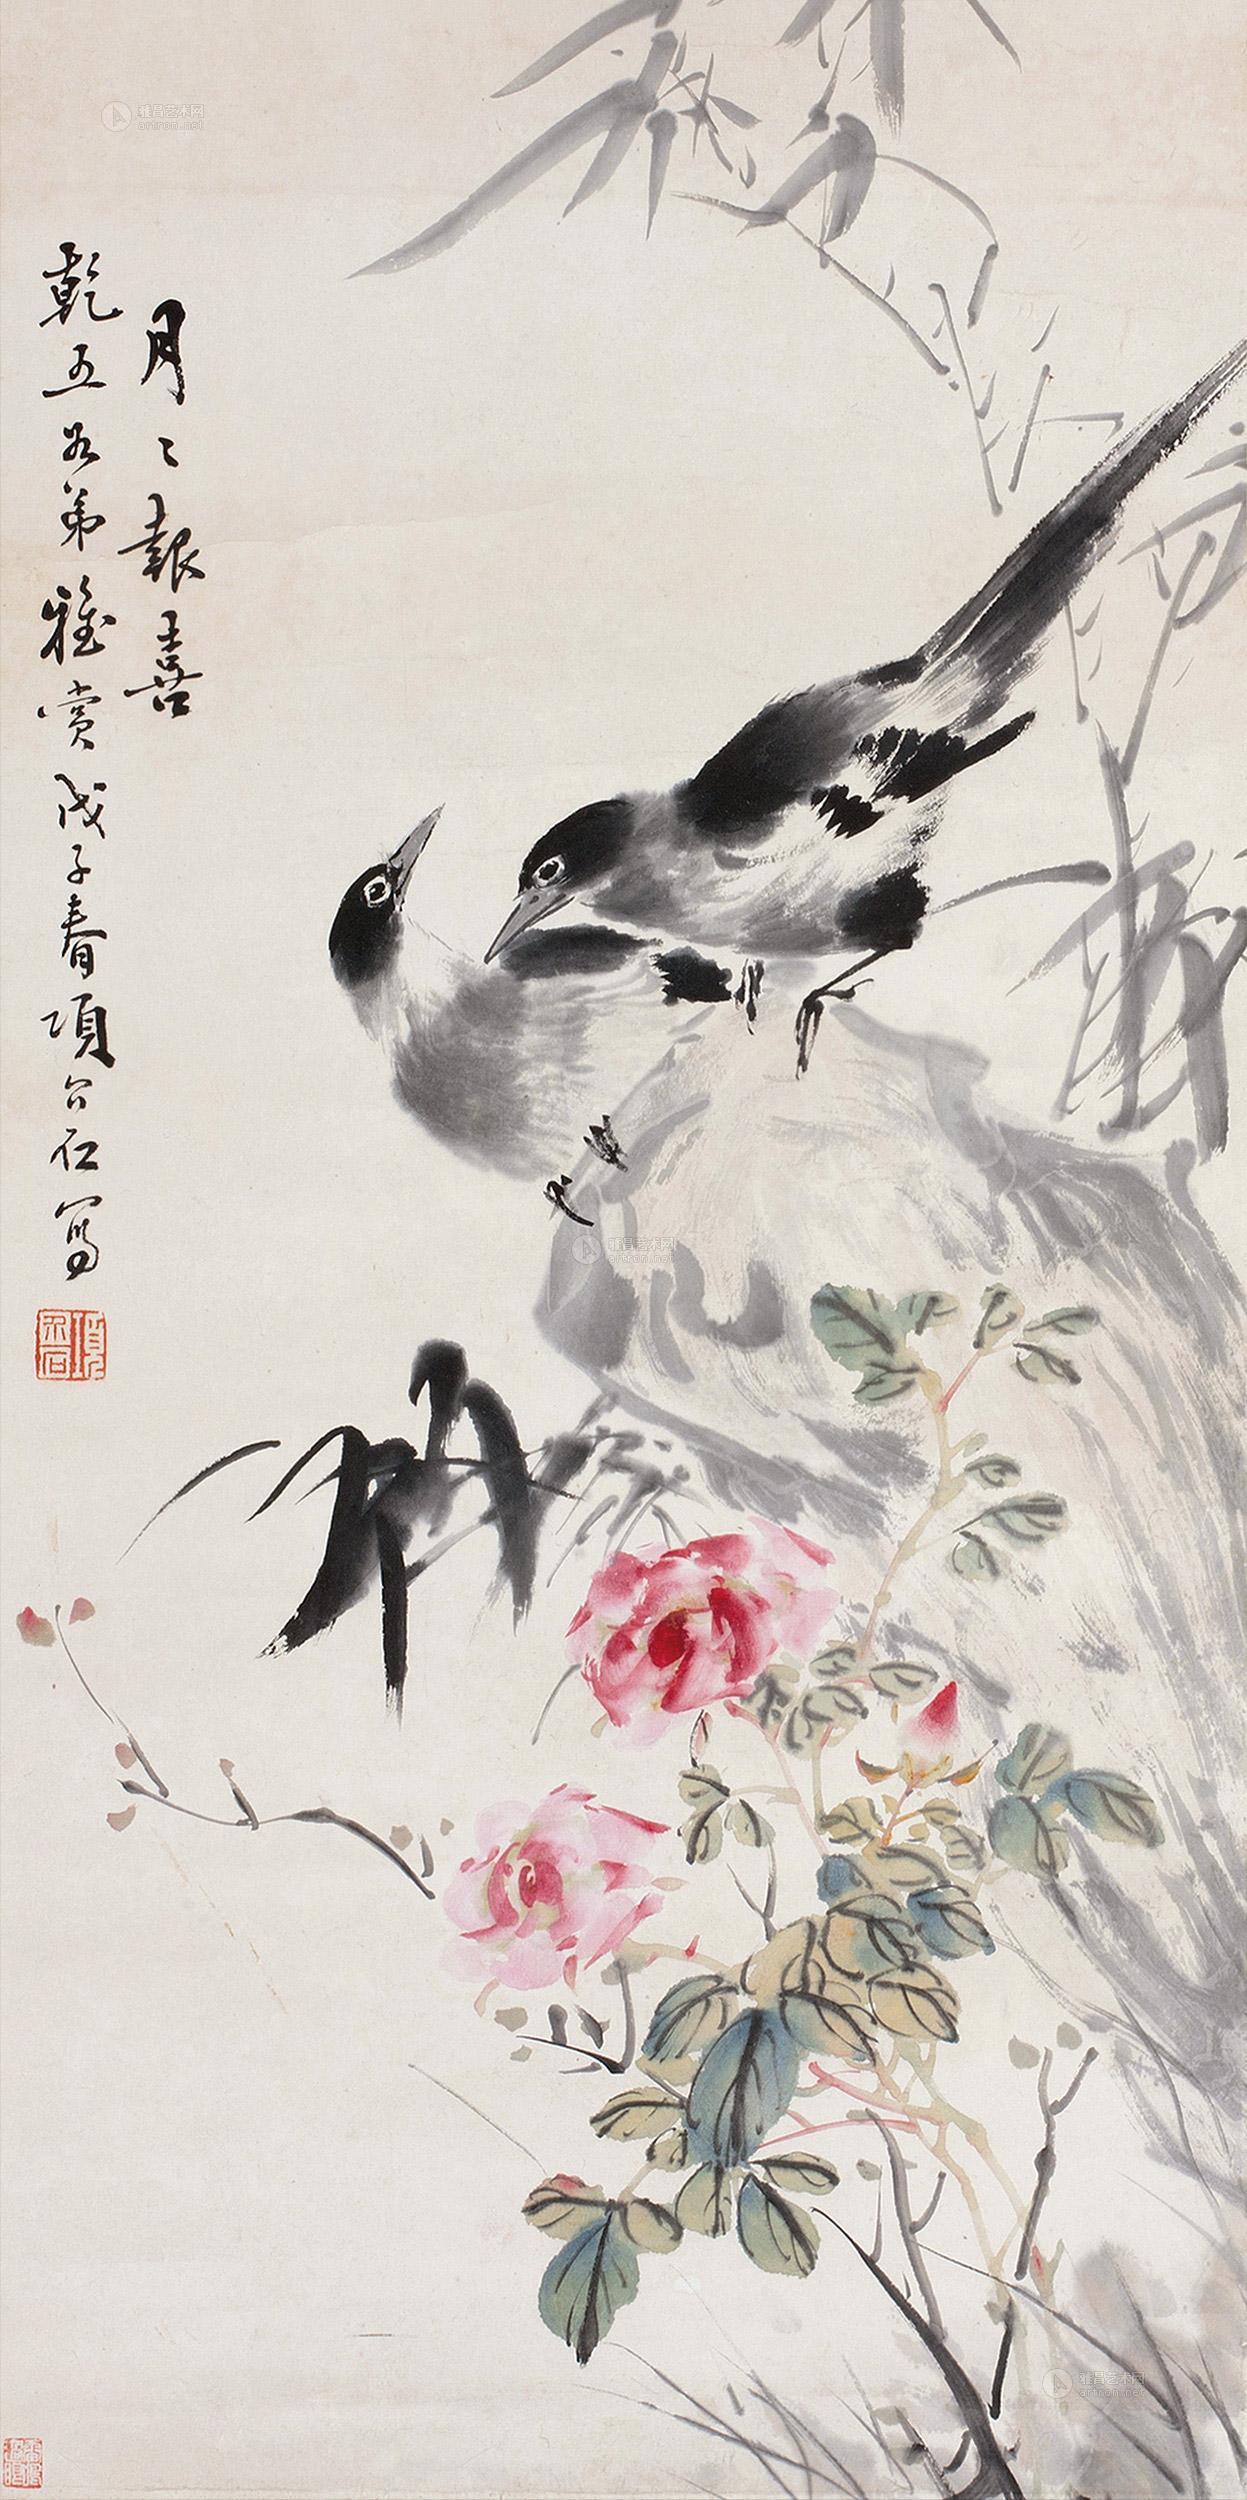 月〻報喜
乾五如弟雅賞戊子春項公石寫
雅昌艺术网
artron.net
雅昌艺术网
artron.net
雅昌艺术网
artron.net